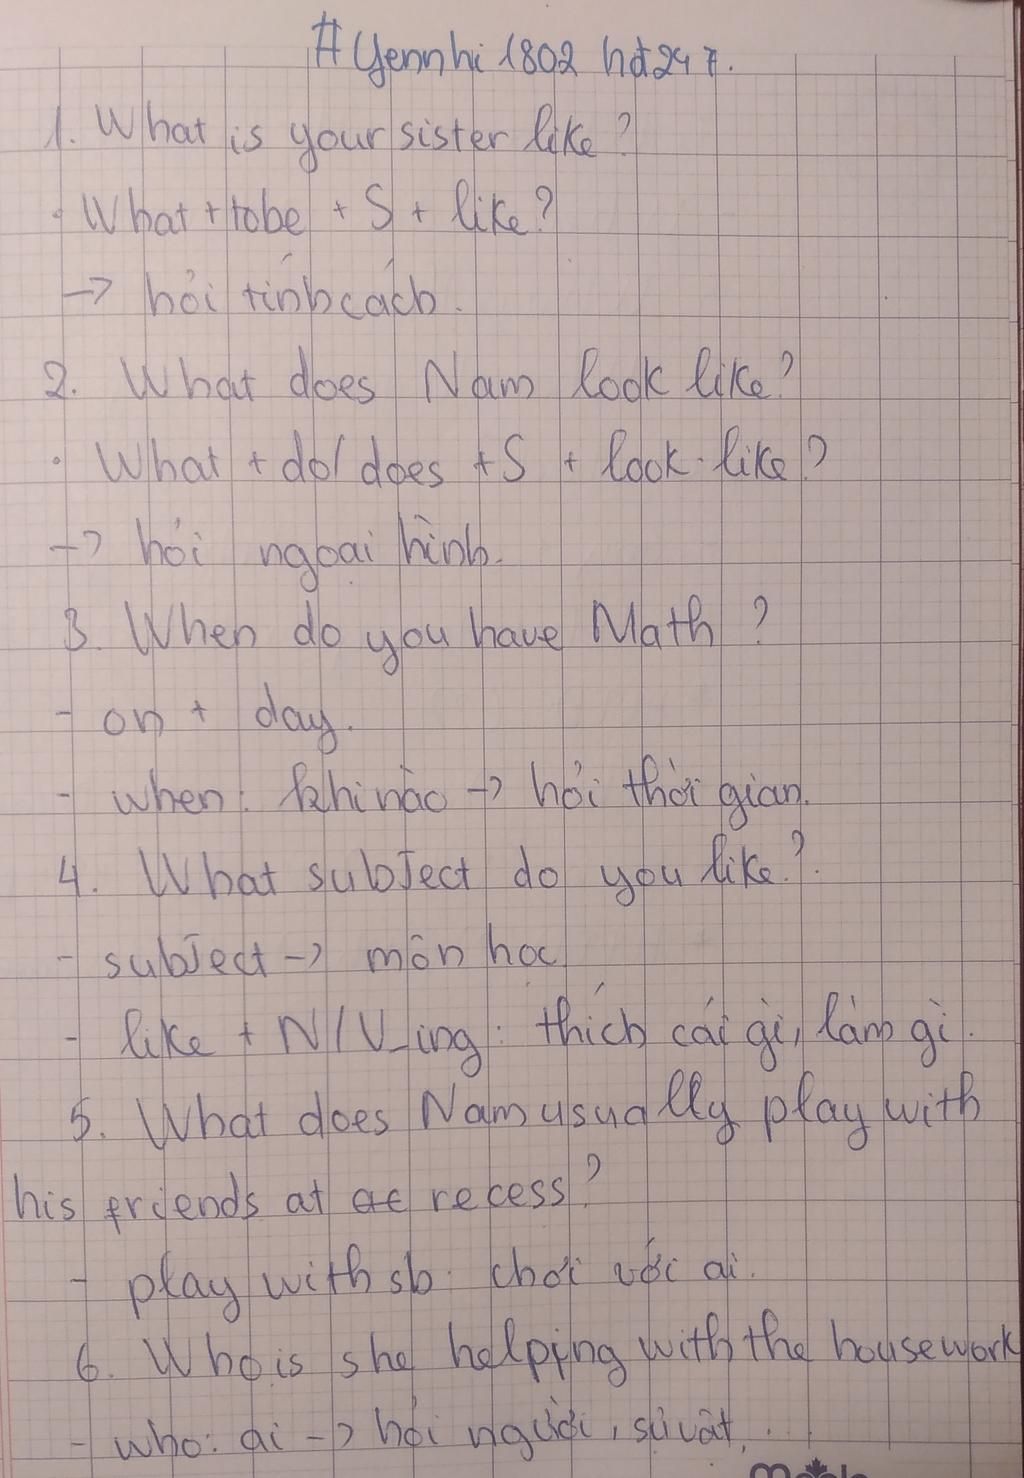 #Yennhi1802 hđ247.
1. What is your sister like?
• What + tobe + S + like?
-> hỏi tính cách.
2. What does Nam look like?
• What + do/does + S + look like?
-> hỏi ngoại hình.
3. When do you have Math?
- on + day.
- when: khi nào -> hỏi thời gian.
4. What subject do you like?
- subject -> môn học
- like + N/V_ing: thích cái gì, làm gì.
5. What does Nam usually play with
his friends at at recess?
- play with sb: chơi với ai.
6. Who is she helping with the housework
- who: ai -> hỏi người, sự vật.